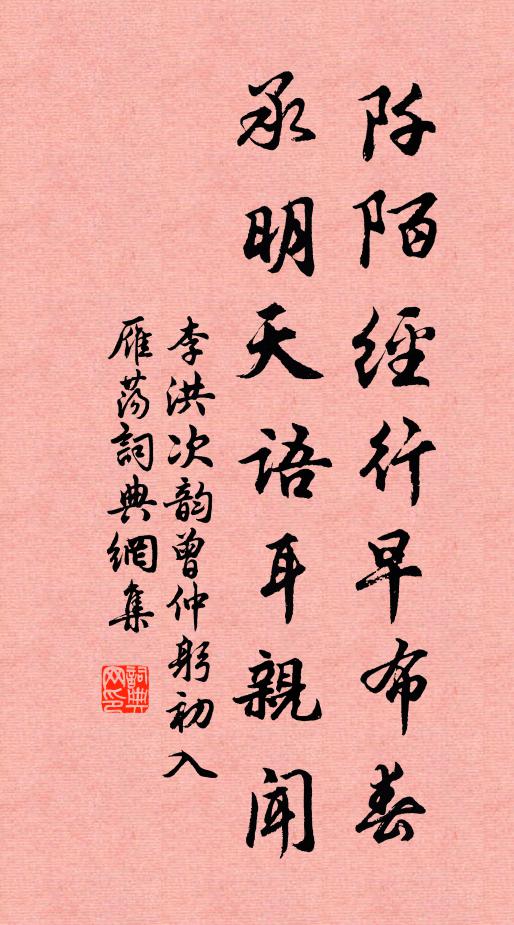 阡陌經行早布春
承明天語耳親聞
李洪次韵曾仲躬初入
雁荡詞典網集
詞典網印